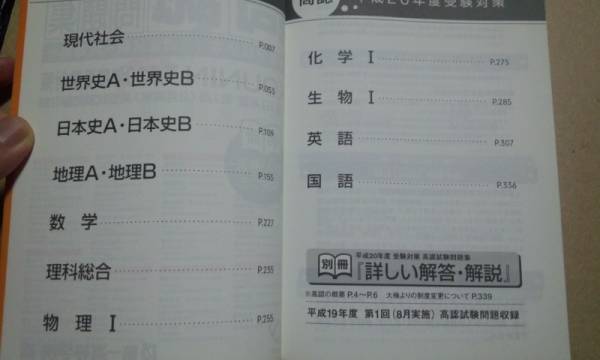 現代社会 P.007
世界史A・世界史B P.055
日本史A・日本史B P.109
地理A・地理B P.155
数学 P.227
理科総合 P.235
物理Ⅰ P.255
高認
平成20年度受験対策
化学Ⅰ P.275
生物Ⅰ P.285
英語 P.307
国語 P.336
別冊
平成20年度 受験対策 高認試験問題集
『詳しい解答・解説』
※高認の概要 P.4〜P.6 大検よりの制度変更について P.339
平成19年度 第1回(8月実施) 高認試験問題収録